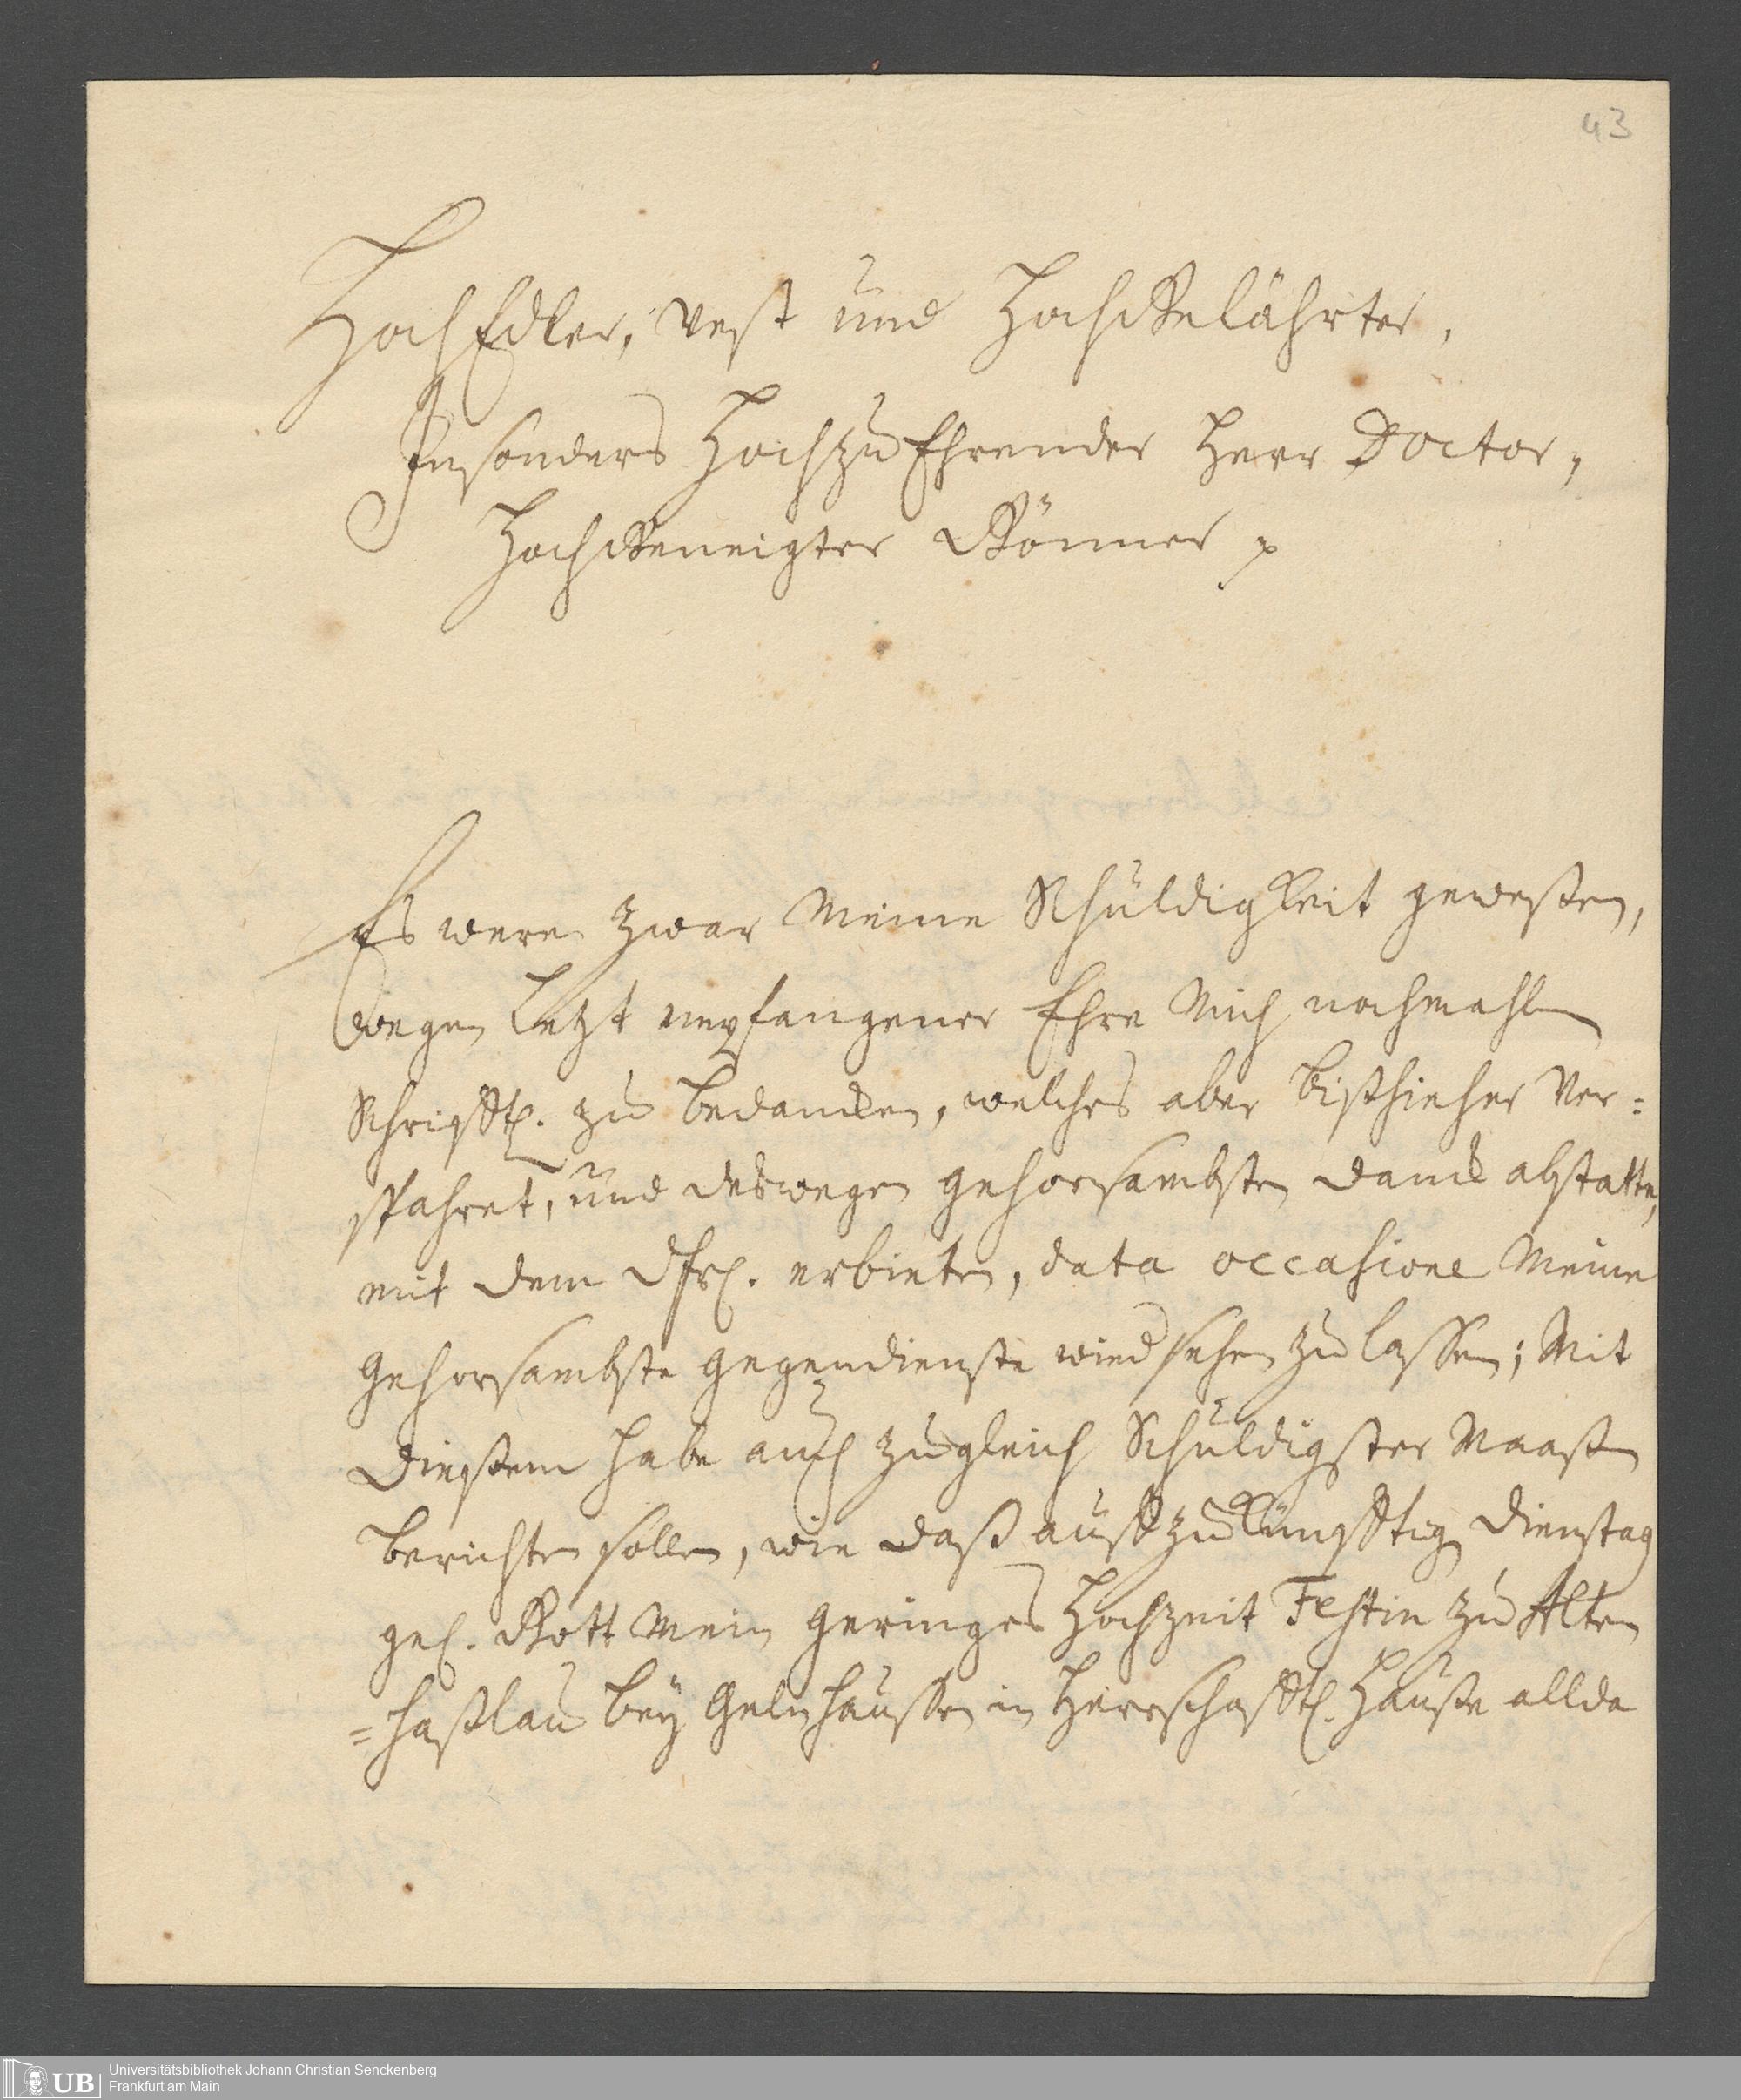 43
HochEdler, Vest und HochGelährter,
Insonders HochzuEhrender Herr Doctor,
HochGeneigter Gönner p
Es were zwar Meine Schüldigkeit geweßen,
wegen Letzt empfangener Ehre Mich nochmahlen
Schrifftl. zu bedancken, welches aber bißhieher Ver=
spahret, und deswegen gehorsambsten danck abstatte,
mit dem erbieten, data occasione Meine
gehorsambste gegendienste wied sehen zu lassen; Mit
dießem habe auch zugleich Schüldigster Maaßen
berichten sollen, wie daß auff zukünfftig Dienstag
gel. Gott Mein geringes Hochzeit Festin zu Alten
=haßlau bey Gelnhaussen in Herrschafftl. Hauße allda
UB Universitätsbibliothek Johann Christian Senckenberg
Frankfurt am Main